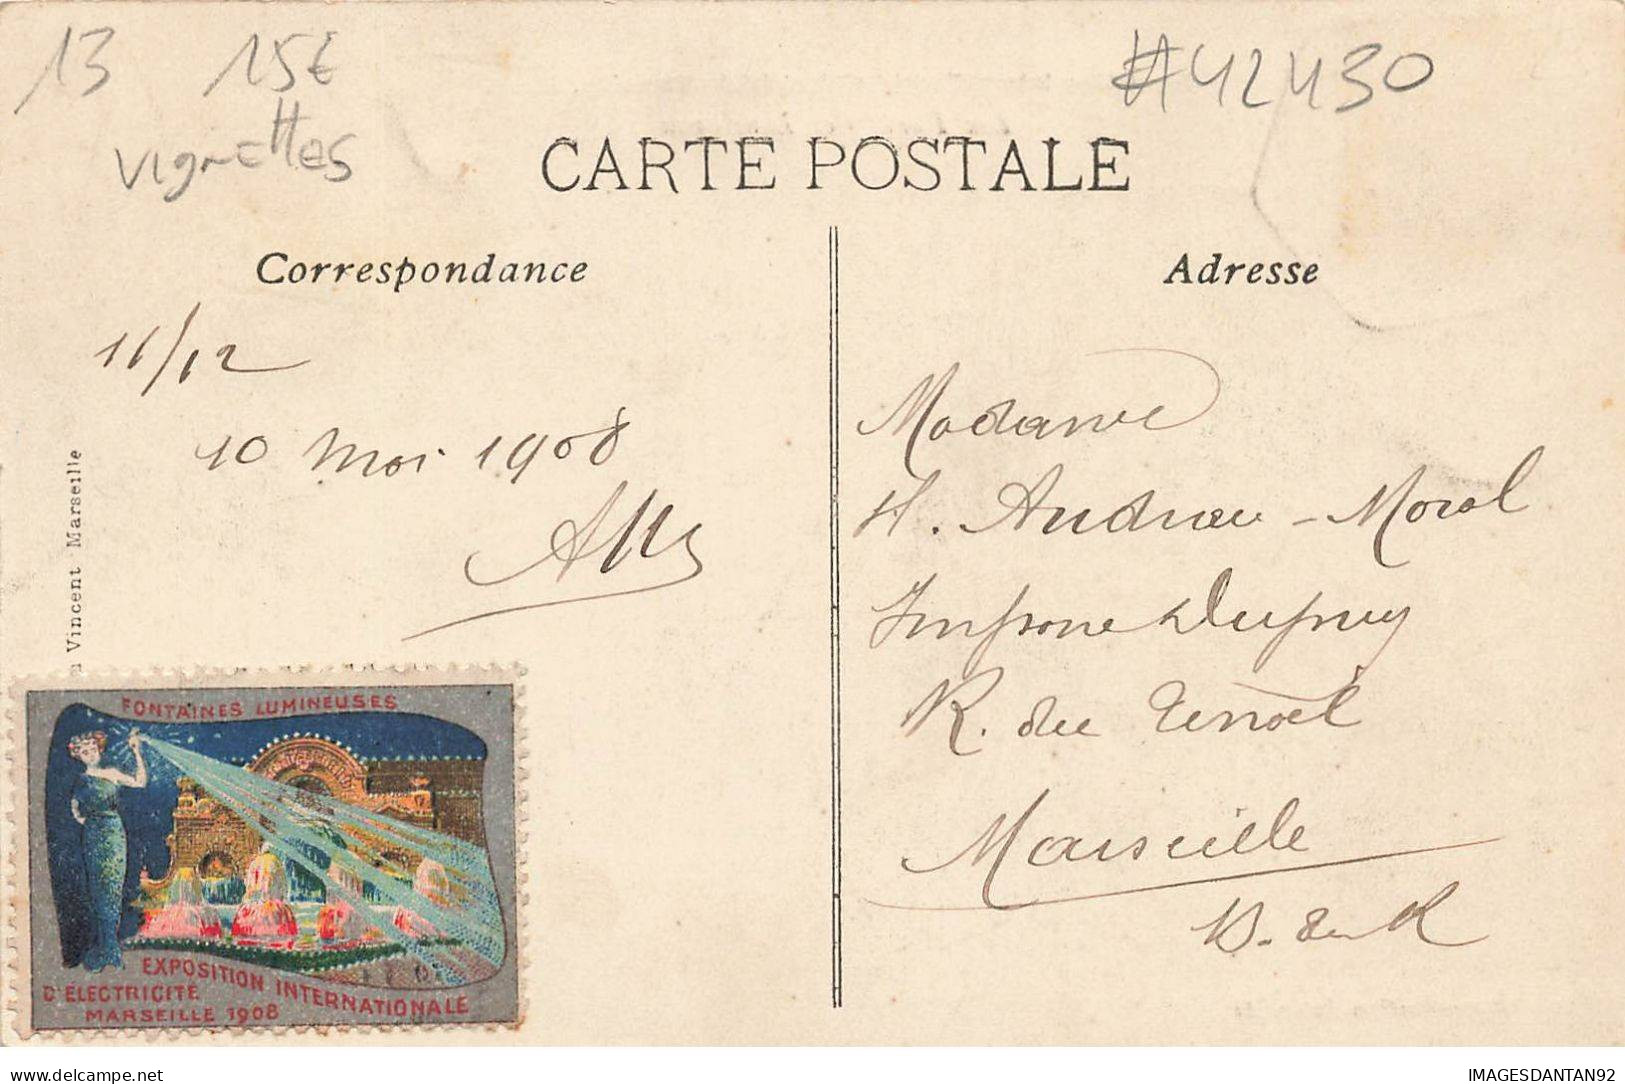 13 15€ #42430
vignettes
CARTE POSTALE
Correspondance
Adresse
11/12
10 Mai 1908
Madame
H. Andrieu - Morel
Impasse Dupuy
R. du Tenoel
Marseille
B. du R
n Vincent Marseille
FONTAINES LUMINEUSES
EXPOSITION INTERNATIONALE
D'ÉLECTRICITÉ
MARSEILLE 1908
delcampe.net
IMAGESDANTAN92